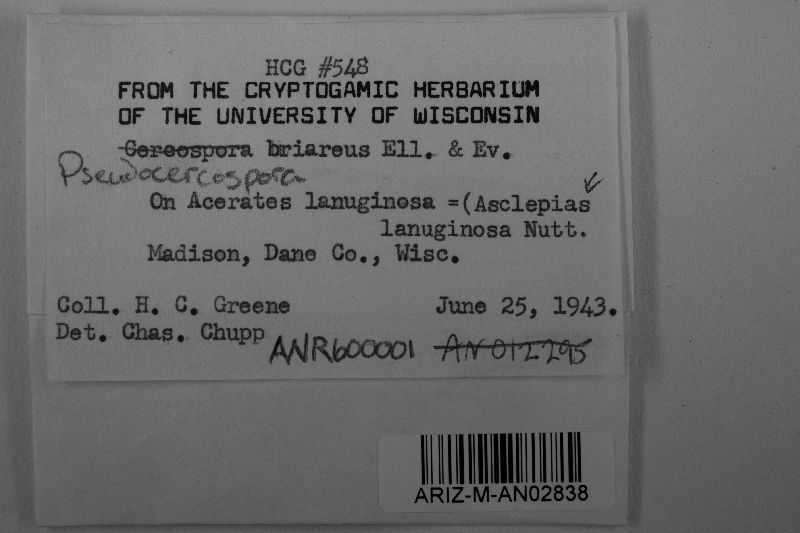 HCG #548
FROM THE CRYPTOGAMIC HERBARIUM
OF THE UNIVERSITY OF WISCONSIN
Cercospora briareus Ell. & Ev.
Pseudocercospora
On Acerates lanuginosa =(Asclepias
lanuginosa Nutt.
Madison, Dane Co., Wisc.
Coll. H. C. Greene June 25, 1943.
Det. Chas. Chupp
ANR600001 AN012295
ARIZ-M-AN02838